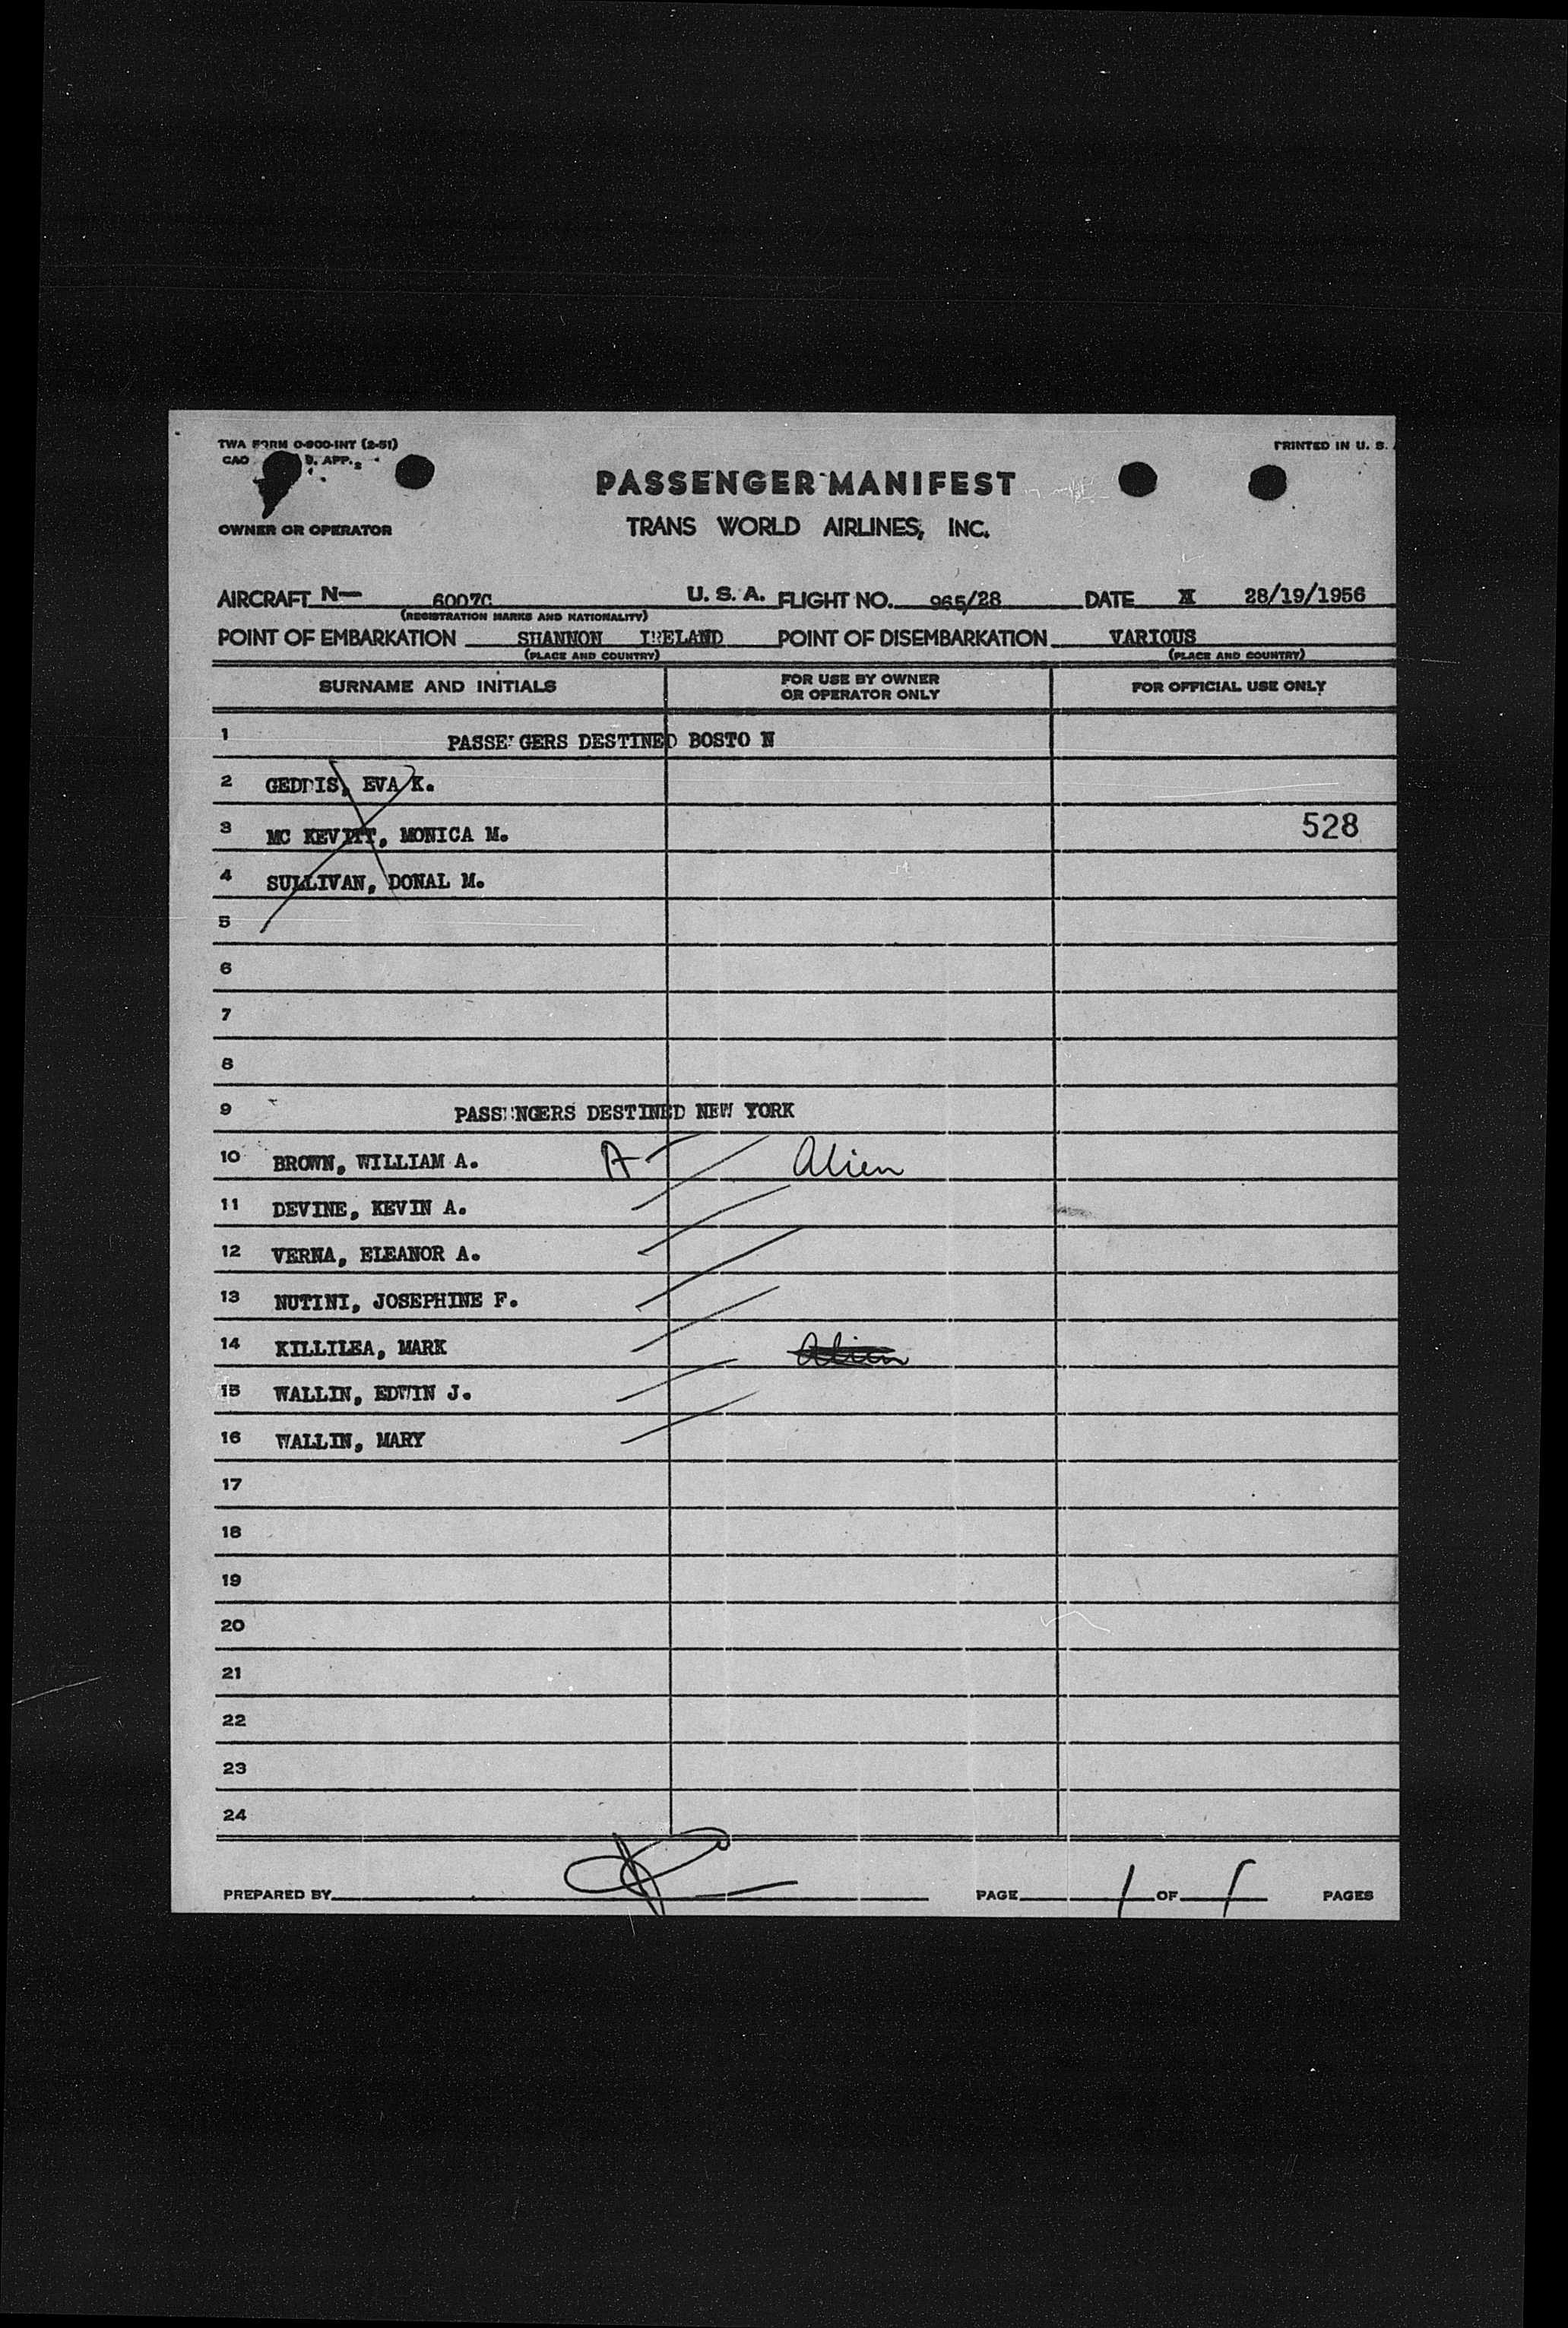 TWA FORM 0-900-INT (2-51)
PRINTED IN U. S.
CAO D. APP.
PASSENGER MANIFEST
OWNER OR OPERATOR
TRANS WORLD AIRLINES, INC.
AIRCRAFT N— 6007C U. S. A. FLIGHT NO. 965/28 DATE X 28/19/1956
(REGISTRATION MARKS AND NATIONALITY)
POINT OF EMBARKATION SHANNON IRELAND POINT OF DISEMBARKATION VARIOUS
(PLACE AND COUNTRY) (PLACE AND COUNTRY)
SURNAME AND INITIALS FOR USE BY OWNER OR OPERATOR ONLY FOR OFFICIAL USE ONLY
1 PASSENGERS DESTINED BOSTO N
2 GEDDIS, EVA K.
3 MC KEVITT, MONICA M. 528
4 SULLIVAN, DONAL M.
5
6
7
8
9 PASSENGERS DESTINED NEW YORK
10 BROWN, WILLIAM A. A Alien
11 DEVINE, KEVIN A.
12 VERNA, ELEANOR A.
13 NUTINI, JOSEPHINE F.
14 KILLILEA, MARK Alien
15 WALLIN, EDWIN J.
16 WALLIN, MARY
17
18
19
20
21
22
23
24
PREPARED BY PAGE 1 OF 1 PAGES